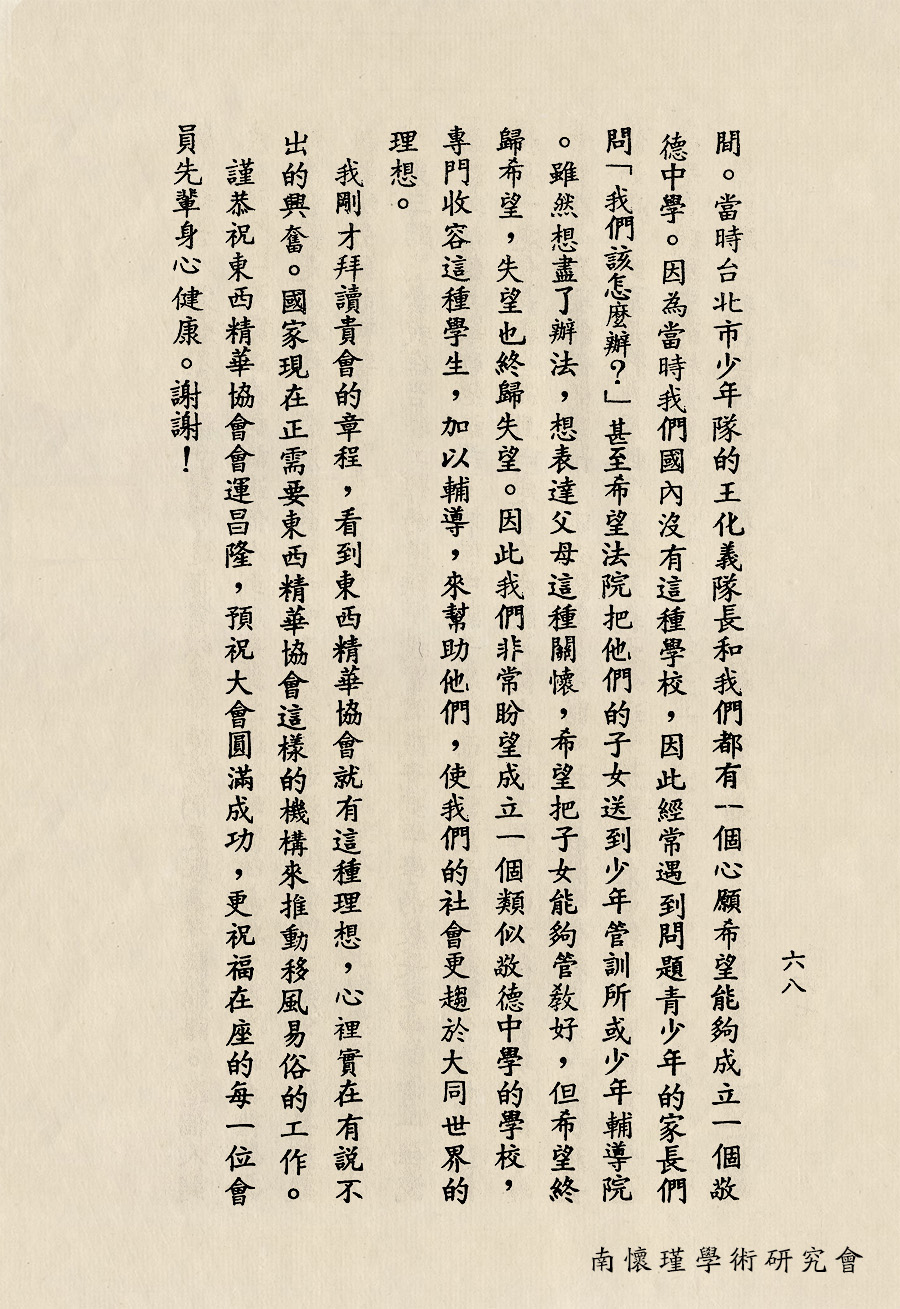 間。當時台北市少年隊的王化義隊長和我們都有一個心願希望能夠成立一個敬
德中學。因為當時我們國內沒有這種學校，因此經常遇到問題青少年的家長們
問「我們該怎麼辦？」甚至希望法院把他們的子女送到少年管訓所或少年輔導院
。雖然想盡了辦法，想表達父母這種關懷，希望把子女能夠管教好，但希望終
歸希望，失望也終歸失望。因此我們非常盼望成立一個類似敬德中學的學校，
專門收容這種學生，加以輔導，來幫助他們，使我們的社會更趨於大同世界的
理想。
我剛才拜讀貴會的章程，看到東西精華協會就有這種理想，心裡實在有說不
出的興奮。國家現在正需要東西精華協會這樣的機構來推動移風易俗的工作。
謹恭祝東西精華協會會運昌隆，預祝大會圓滿成功，更祝福在座的每一位會
員先輩身心健康。謝謝！
六八
南懷瑾學術研究會